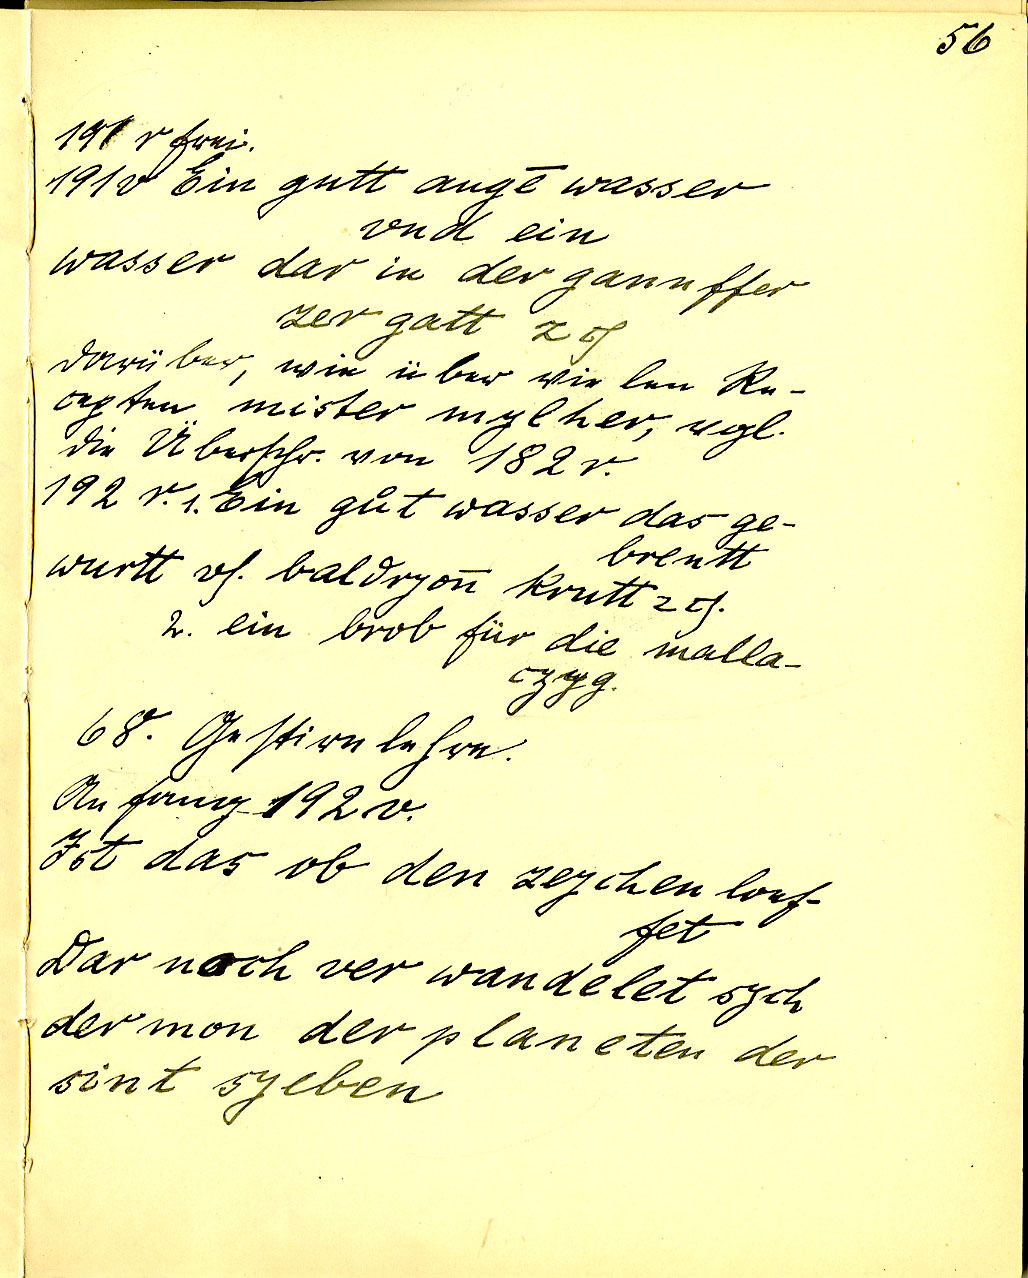 56
191 r frei.
191v Ein gutt augē wasser
vnd ein
wasser dar in der gannffer
zer gatt
darüber, wie über vielen Re-
cepten mister mylher, vgl.
die Überschr. von 182 r.
192 r. 1. Ein gůt wasser das ge-
brentt
wurtt vs. baldryon̄ krutt
2. ein brob für die malla-
czyg.
68. Gestirnlehre.
Anfang 192 v.
Ist das ob den zeychen louf-
fet
Dar noch ver wandelet sych
der mon der planeten der
sint syeben